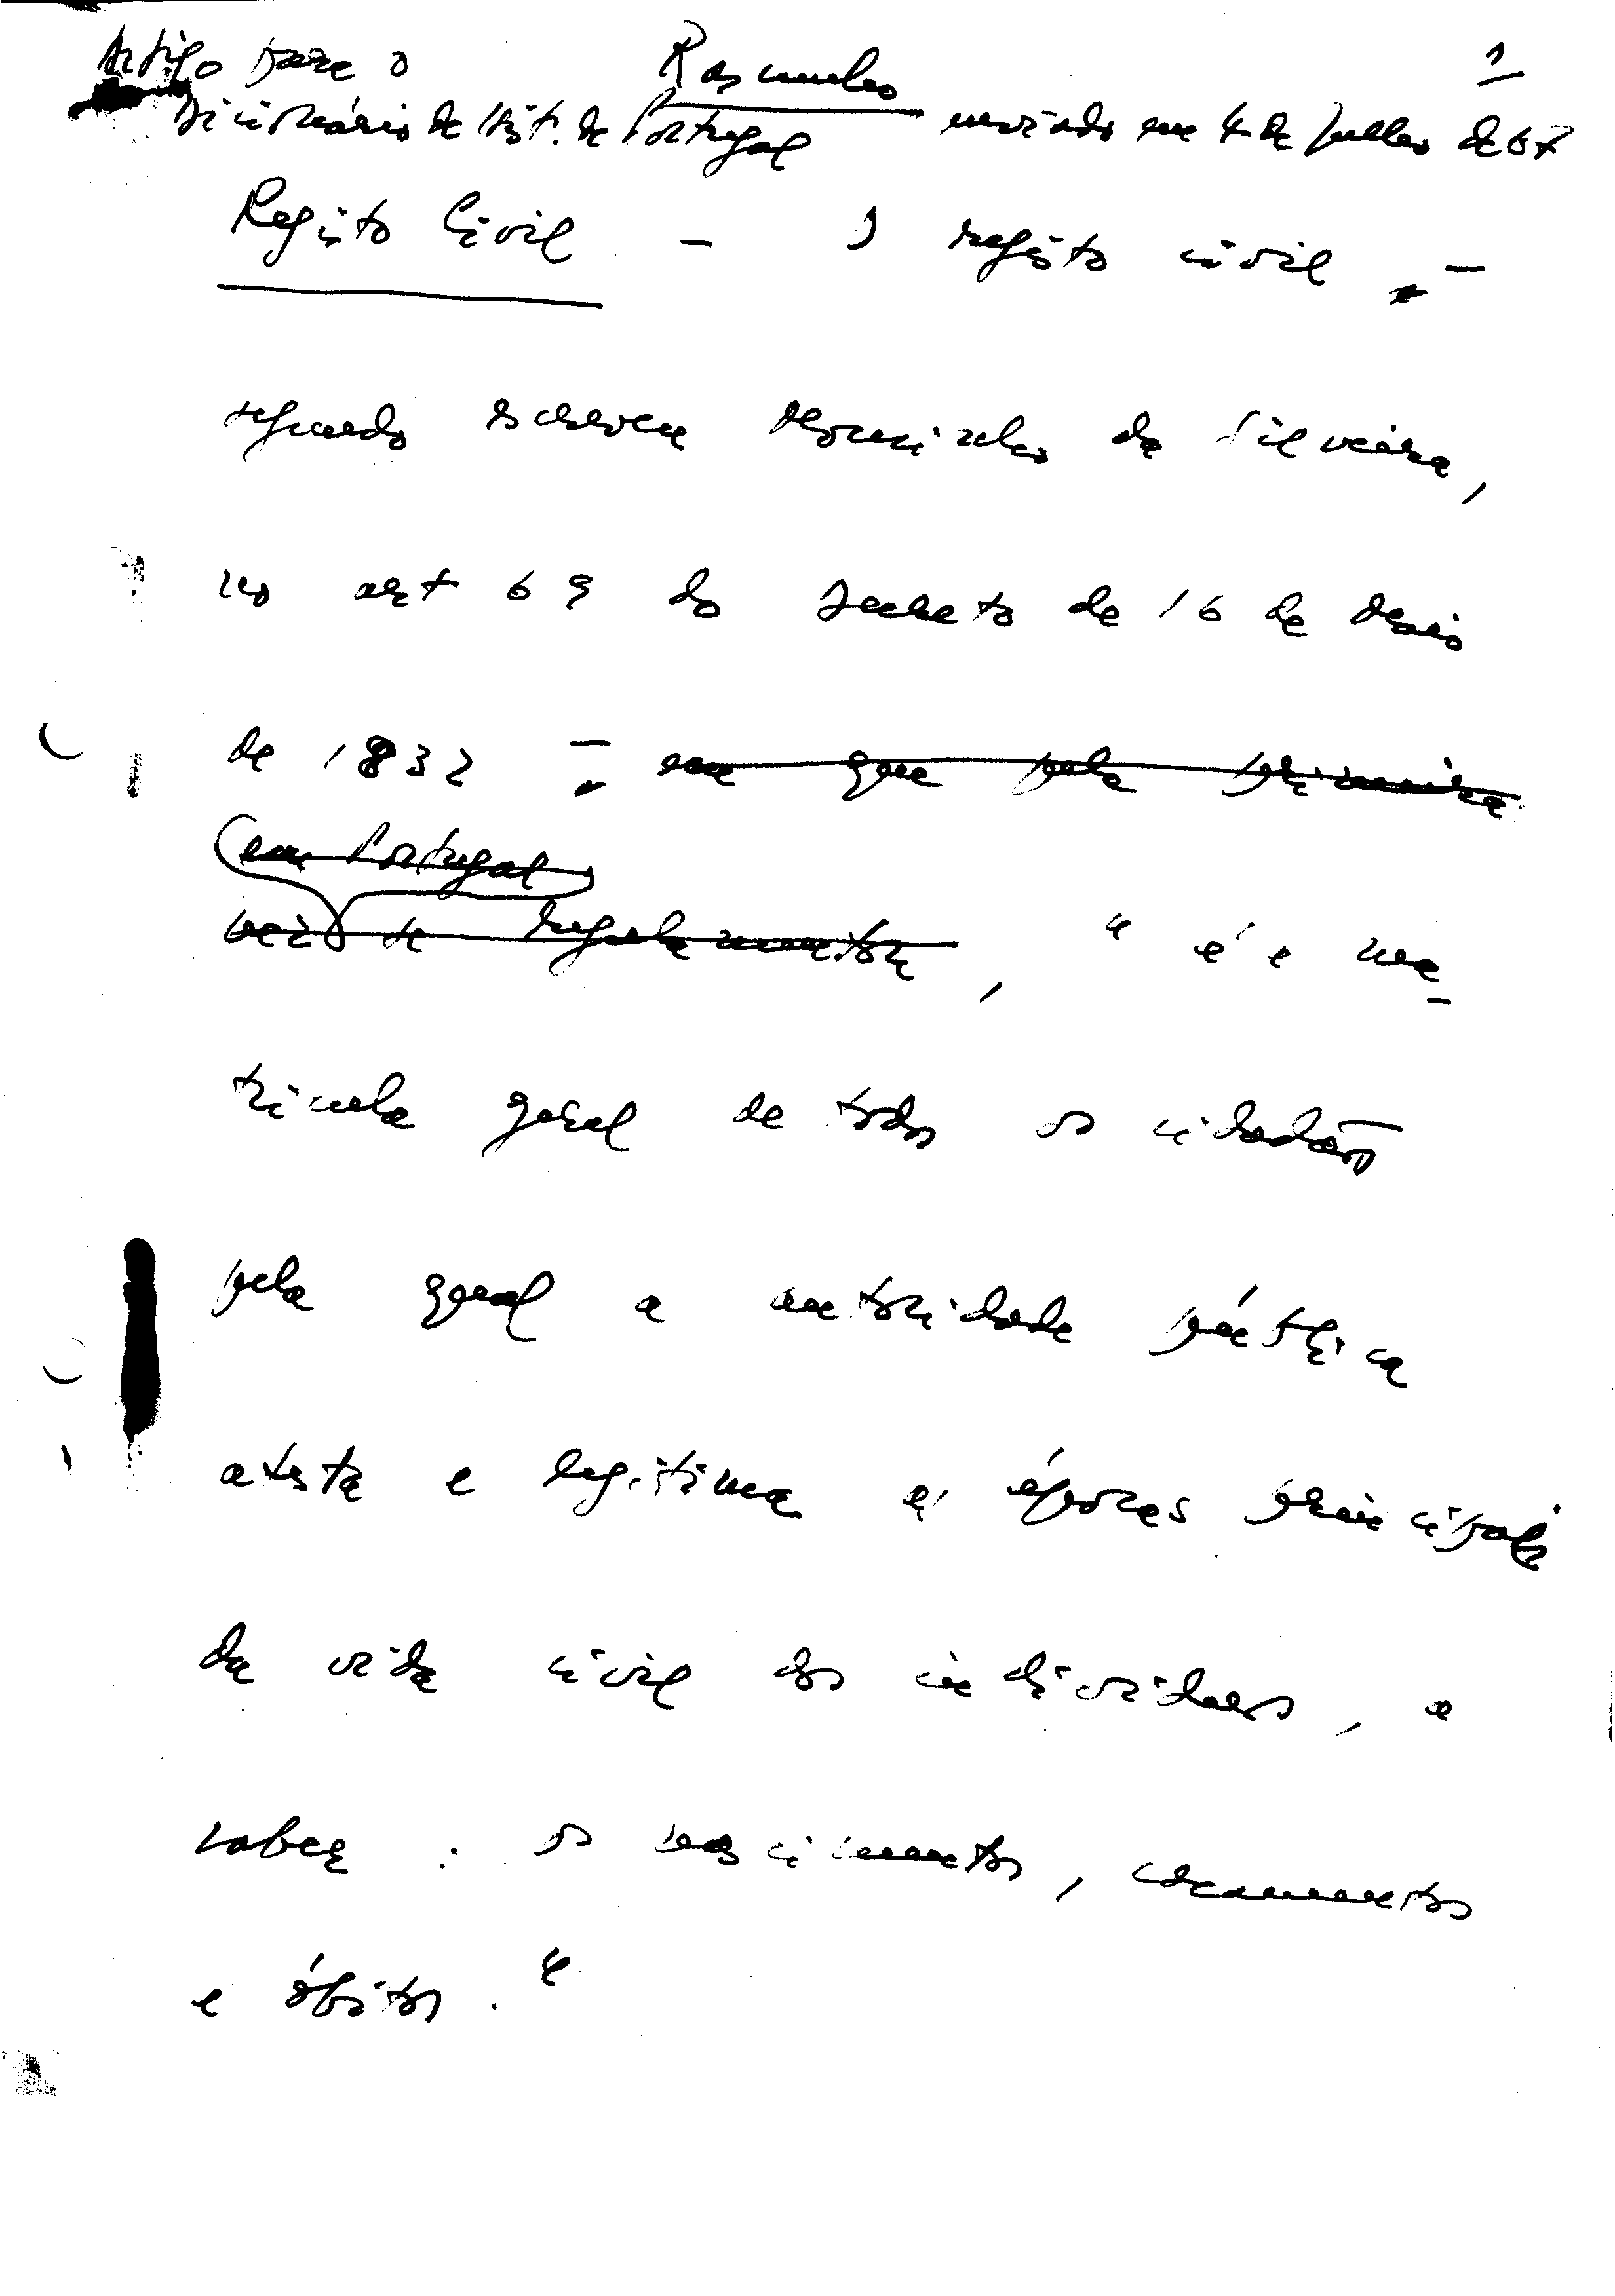 Artigo para o Rascunho 1
Dicionário de Hist. de Portugal enviado em 4 de Julho de 67
Registo Civil - O registo civil, -
segundo escreveu Mousinho da Silveira,
no art 69 do Decreto de 16 de Maio
de 1832 - em que pela primeira
(em Portugal)
vez se regulamentou, " é a ma-
trícula geral de todos os cidadãos
pela qual a autoridade pública
atesta e legitima as épocas principais
da vida civil dos indivíduos, a
saber: os nascimentos, casamentos
e óbitos."